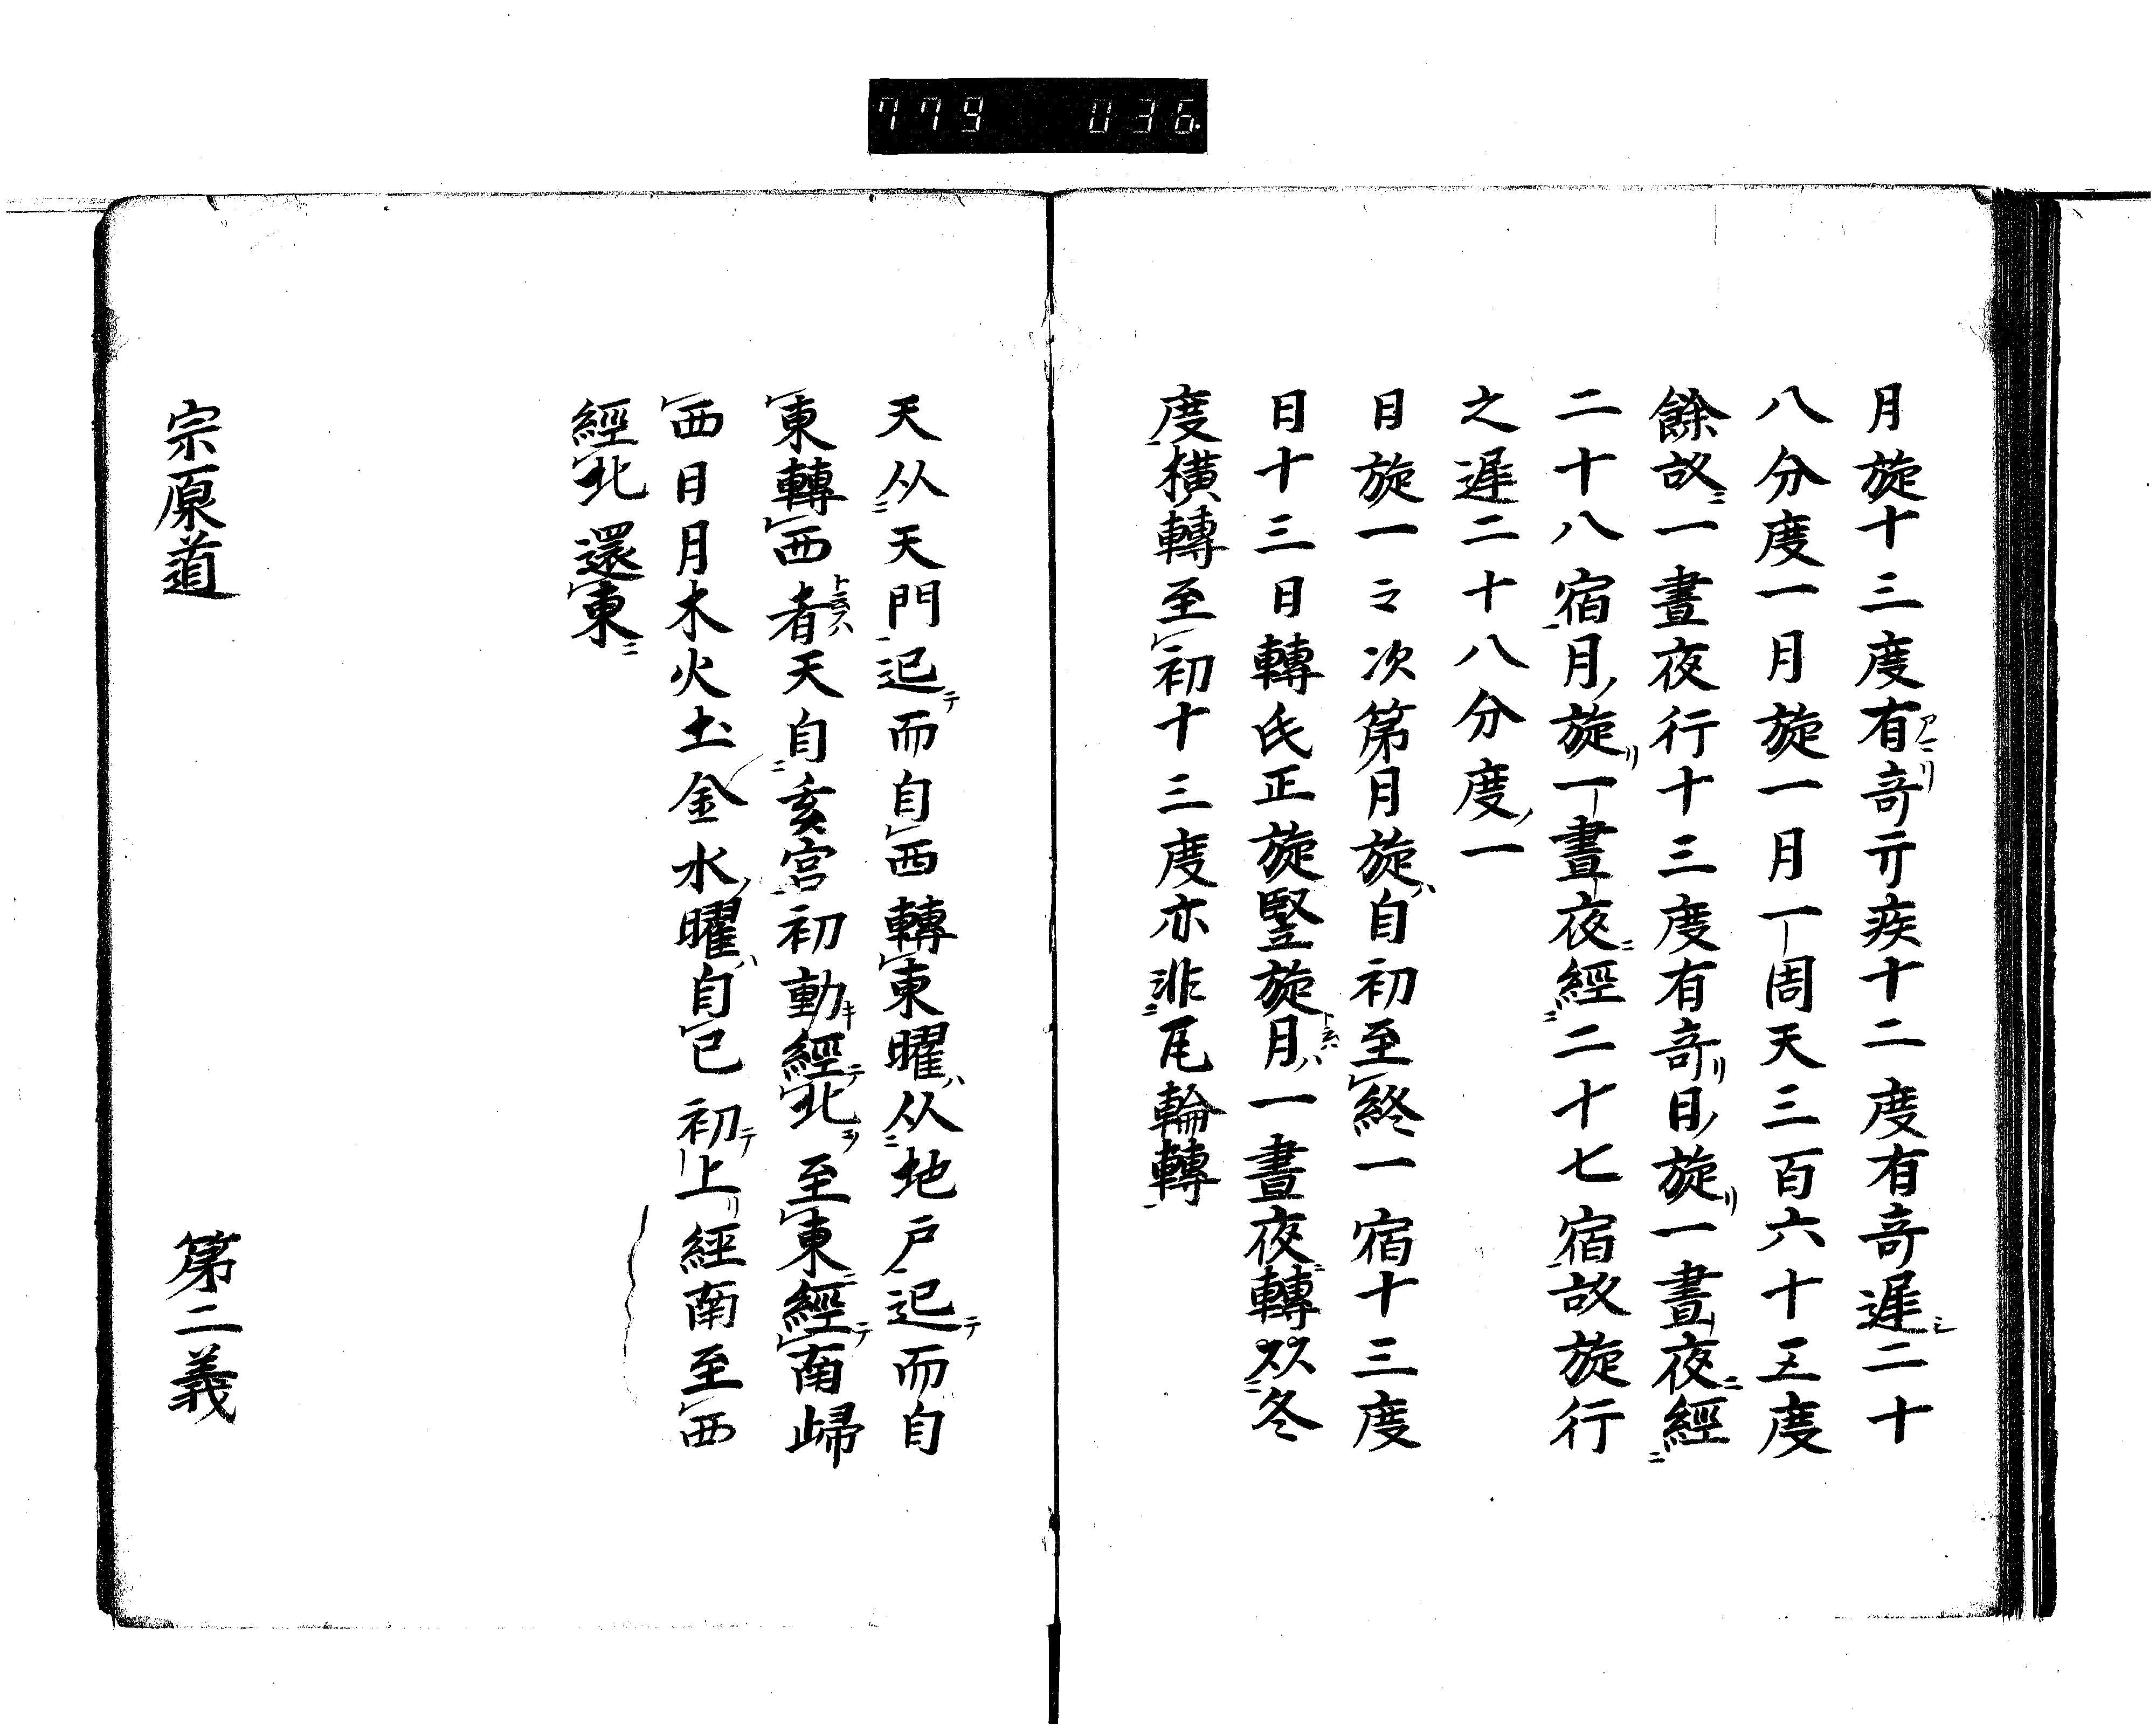 779 036
月旋十三度有竒亓疾十二度有竒遲二十
八分度一月旋一月一周天三百六十五度
餘故一晝夜行十三度有竒月旋一晝夜經
二十八宿月旋一晝夜經二十七宿故旋行
之遲二十八分度一
月旋一々次第月旋自初至終一宿十三度
日十三日轉氐正旋竪旋月一晝夜轉冬
度橫轉至初十三度亦非尾輪轉
天从天門起而自西轉東曜从地戸起而自
東轉西者天自亥宮初動經北至東經南歸
西日月木火土金水曜自巳初上經南至西
經北還東
宗原道 第二義